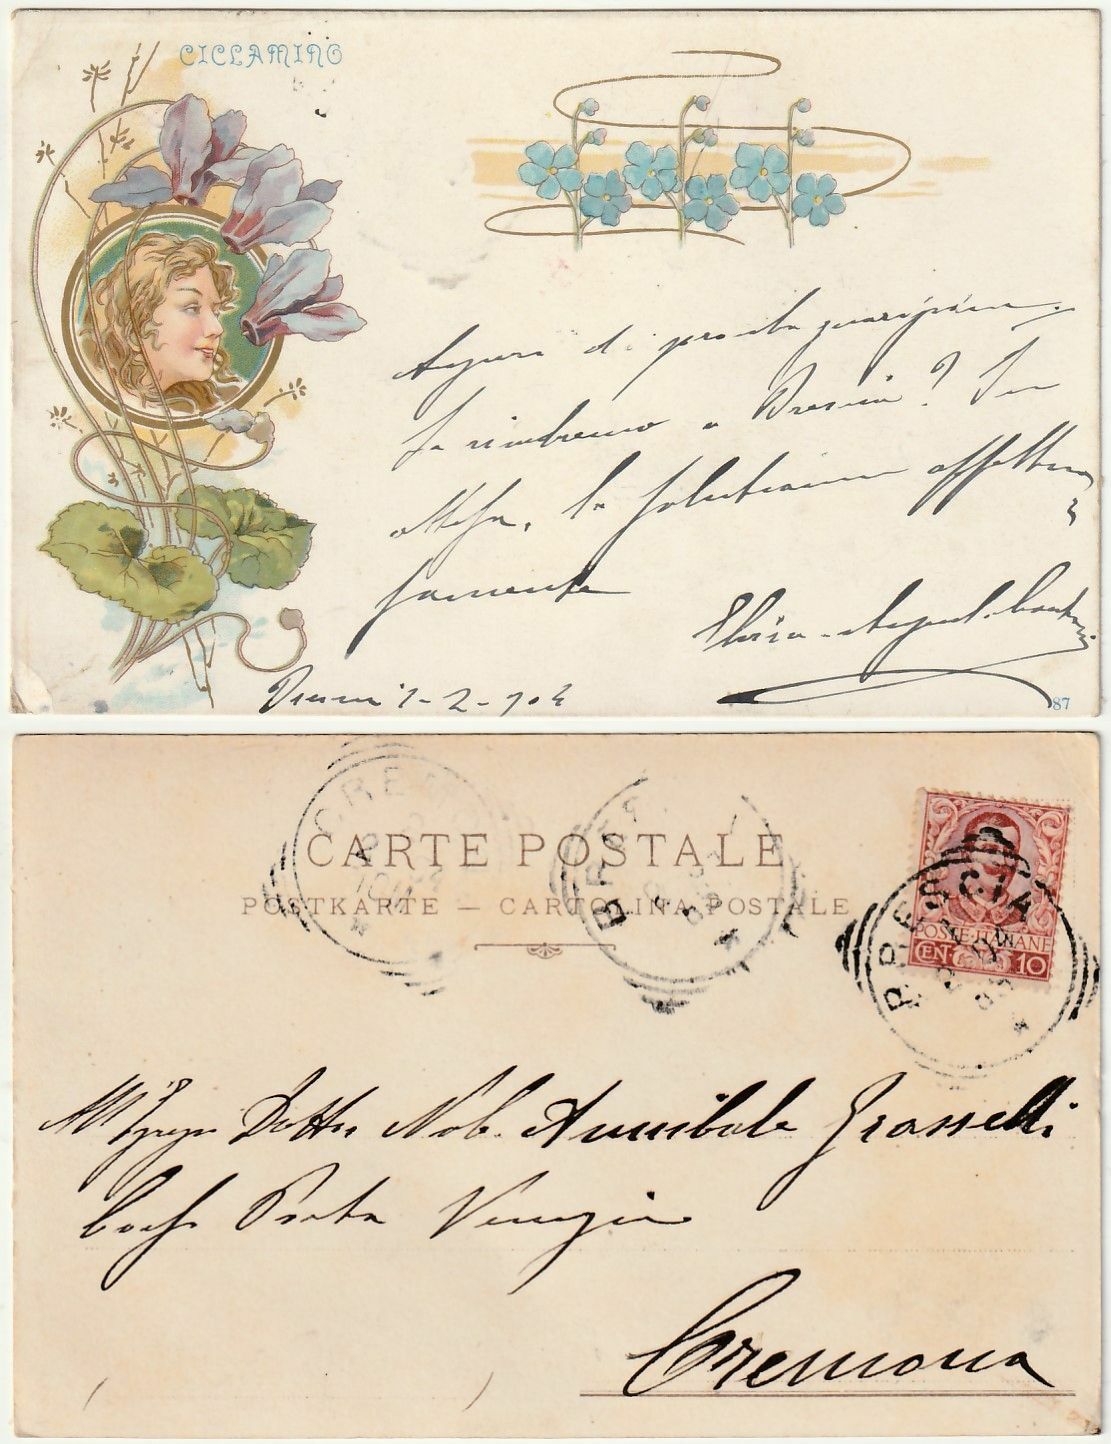 CICLAMINO
Auguri di pronta guarigione.
La rivedremo a Brescia? In
attesa, la salutiamo affettuo
samente
Brescia 1-2-904
87
CREM
CARTE POSTALE
POSTKARTE — CARTOLINA POSTALE
BRESCIA
POSTE ITALIANE
CEN. 10
BRESCIA
All'Egregio Dottor Nob. Annibale Grasselli
Corso Porta Venezia
Cremona